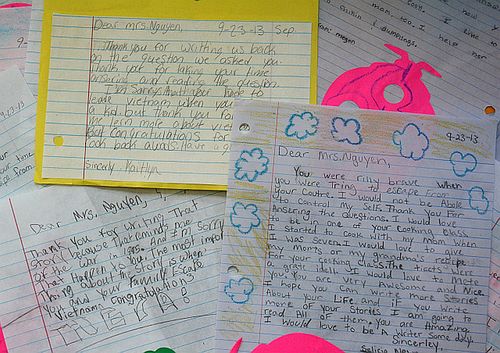 Dear mrs Nguyen, 9-23-13 Sep
Thank you for writing us back
on the question we asked you
thank you for taking your time
ansering and reading the question
I'm Sorry that you have to
leave Vietnam when you
a kid. but thank you for
me lern male about viet
but congratulations for
look back always. Have a g
Sincerly, Kaitlyn
9-23-13
Dear Mrs. Nguyen,
You were rilly brave when
you were Tring to escape From
your Coutre. I would not be Abole
to Control my Self. Thank you For
Ansering the questions. I would Love
to be in one of your Cooking
I started to cook my mom When
I was Seven. I would love to give
my moms or my grandma's recipe
For your Cooking The facts were
a grate idell. I would Love to Mete
you You are very Awesome and Nice
I hope you can Write more Stories
About your Life. and if you write
more of your Stories I am going to
read All of them. You are Amazing
I would love to be A writer Some day.
Sincerley.
Dear Mrs. Nguyen,
Thank you for Writing That
Story because That reminds me
of the War in 1985. And I'm Sorry
That Happen to you. The most import
Thing about the Story is when
you and your Familie Escape
Vietnam. Congratulations
megan
I help her